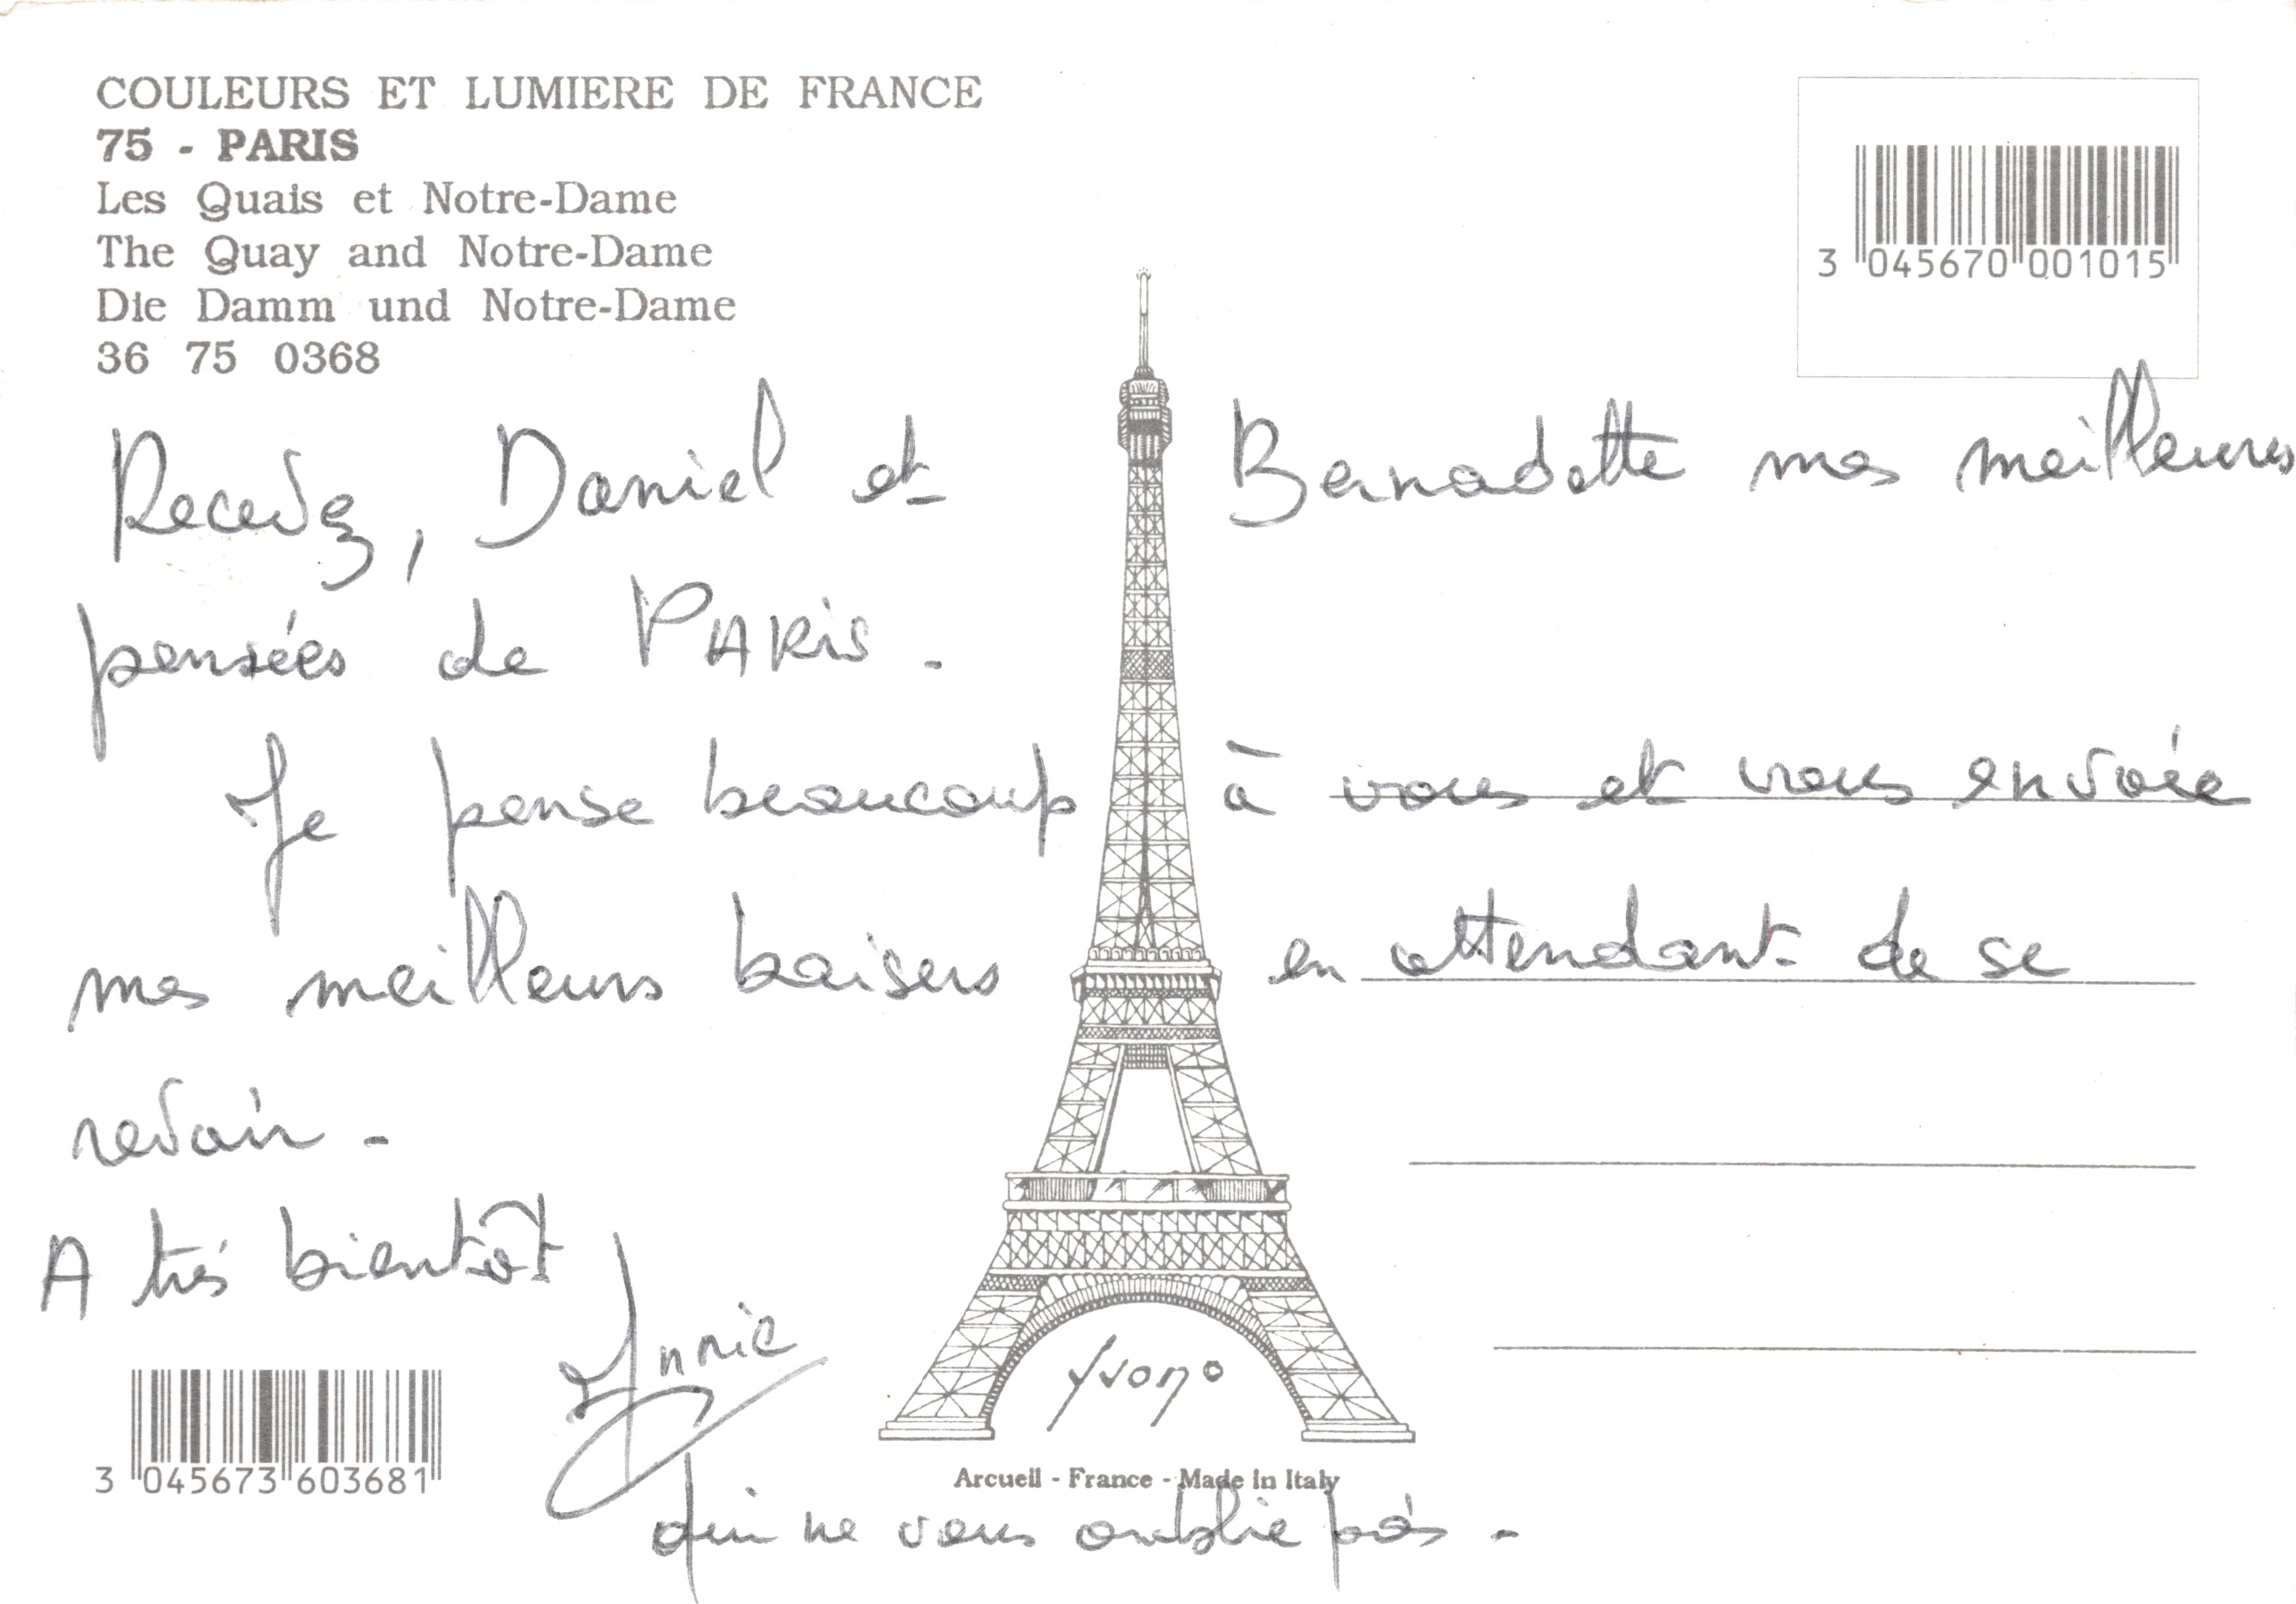 COULEURS ET LUMIERE DE FRANCE
75 - PARIS
Les Quais et Notre-Dame
The Quay and Notre-Dame
Die Damm und Notre-Dame
36 75 0368
3 045670 001015
Recevez, Daniel et Bernadette mes meilleures
pensées de PARIS.
Je pense beaucoup à vous et vous envoie
mes meilleurs baisers en attendant de se
revoir -
A très bientôt
Annie
qui ne vous oublie pas -
3 045673 603681
Yvon
Arcueil - France - Made in Italy